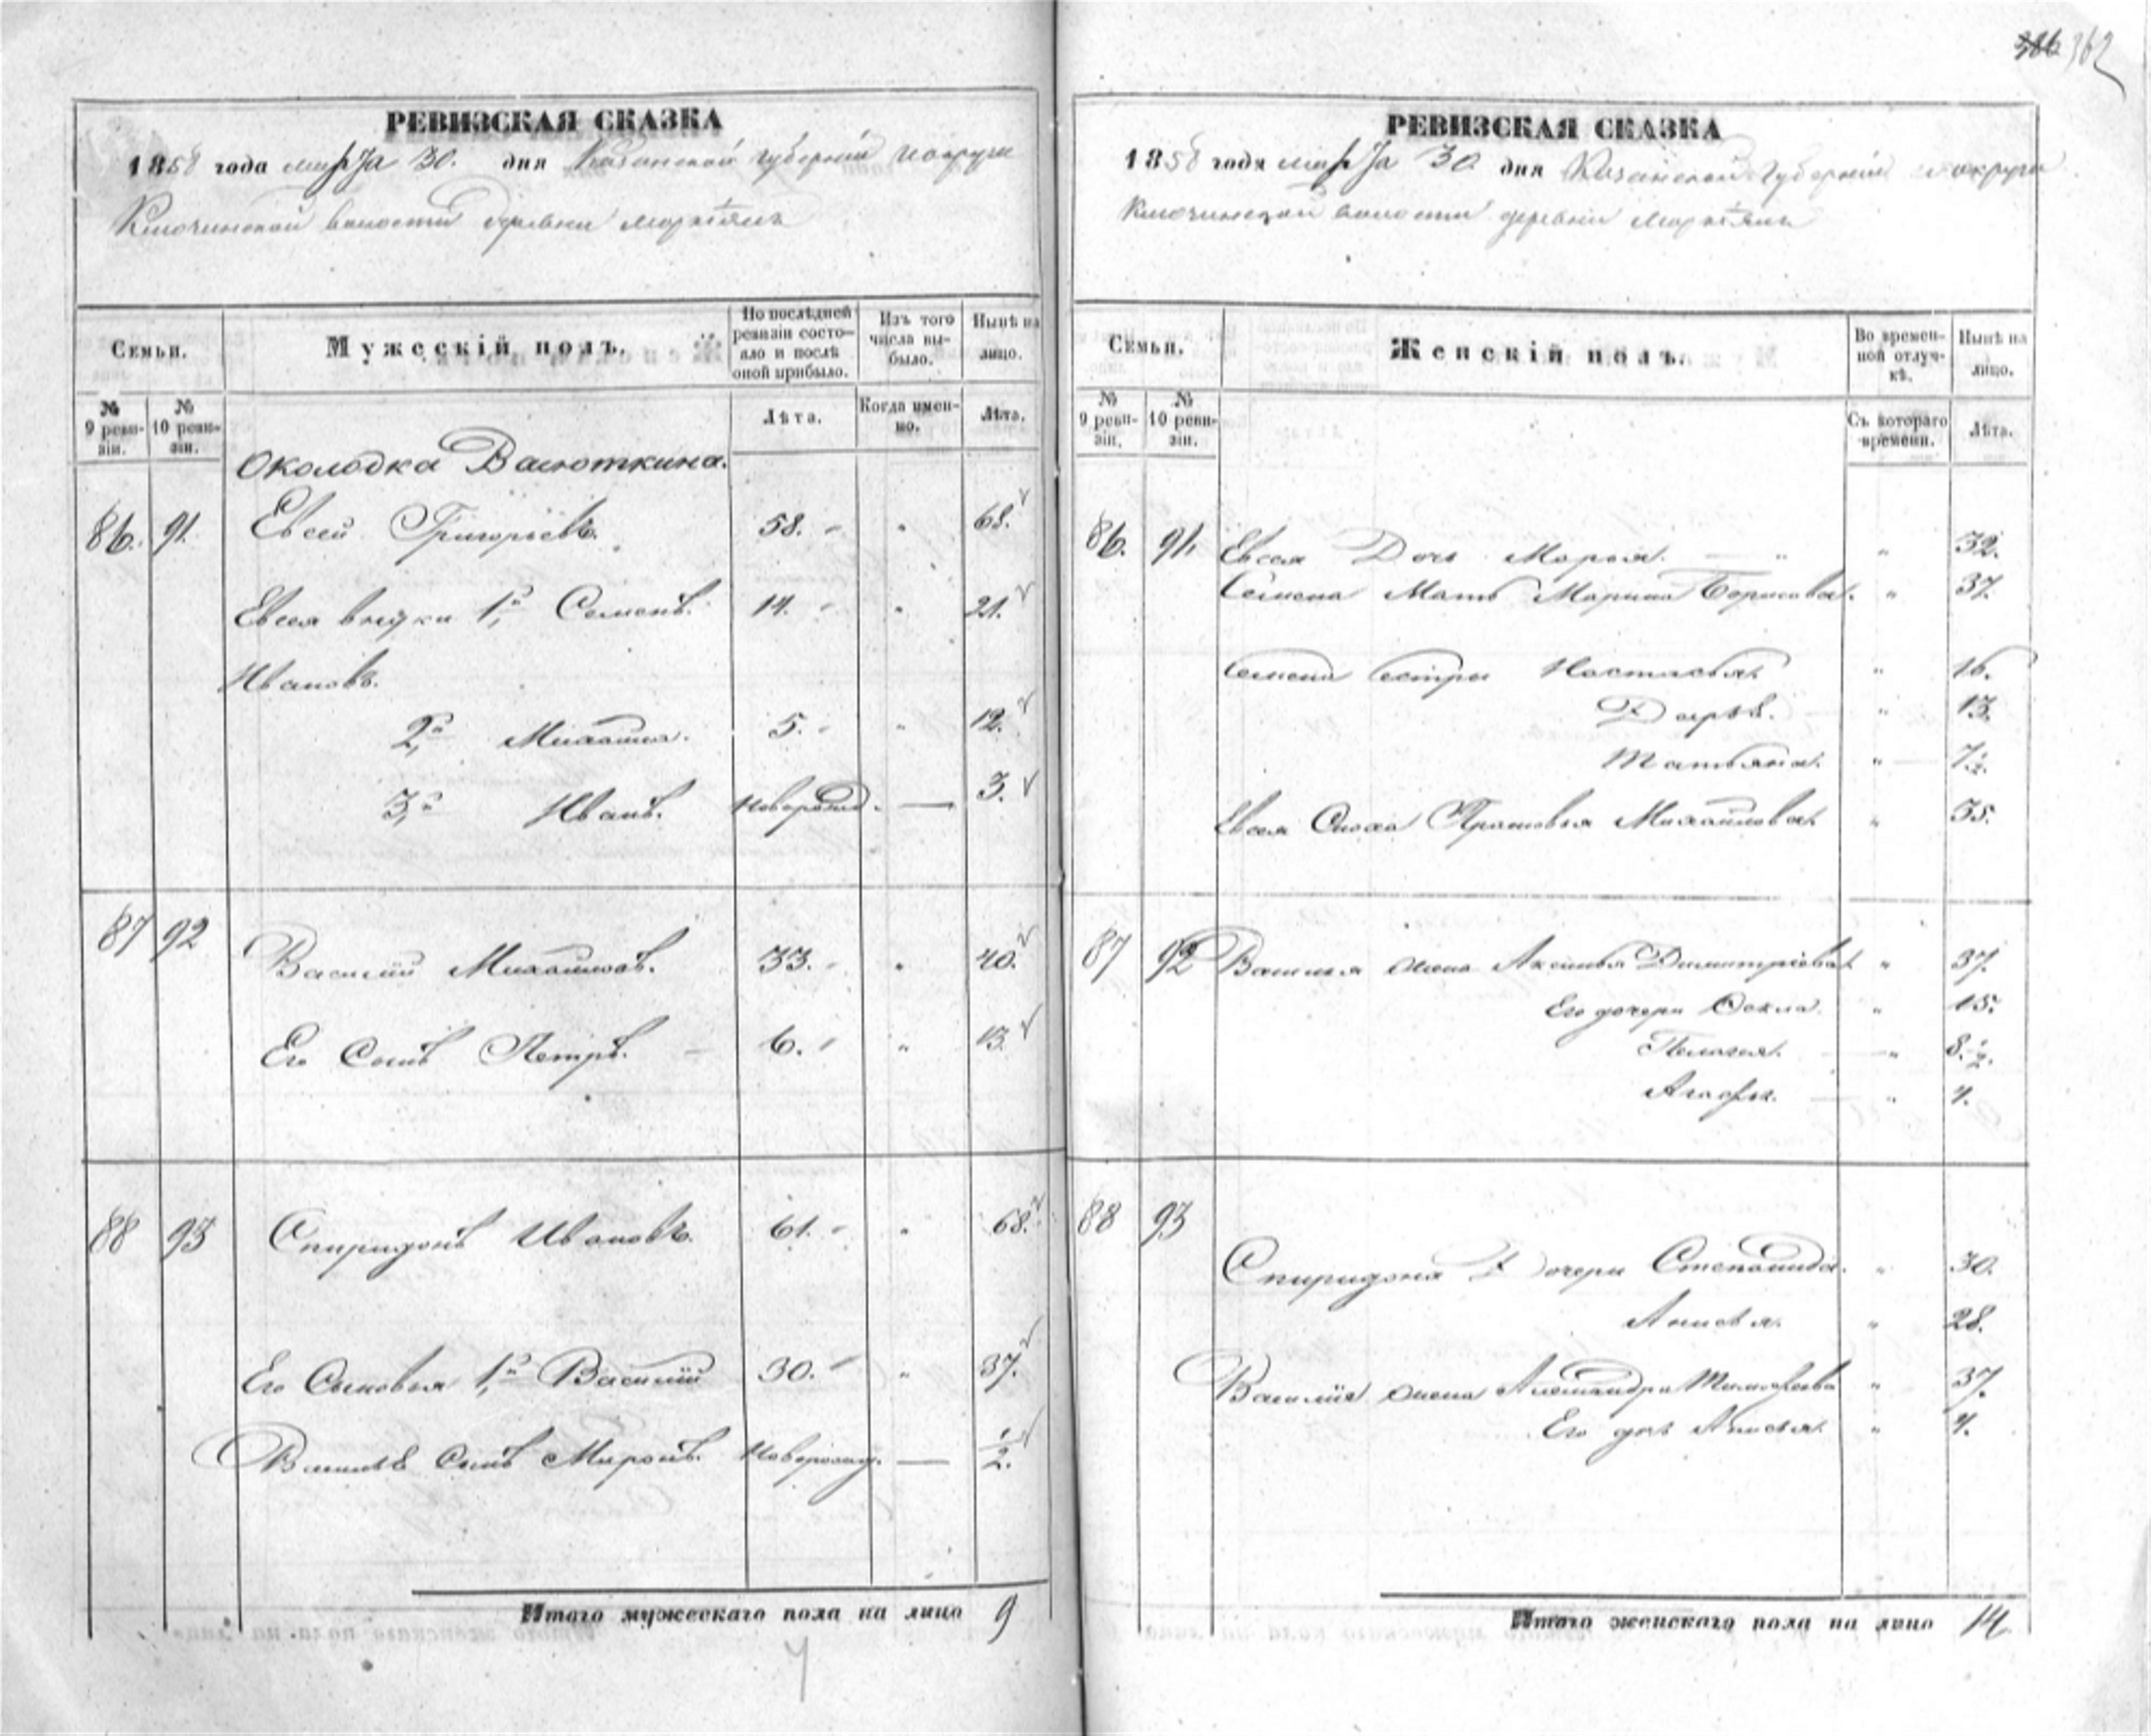 362
РЕВИЗСКАЯ СКАЗКА
1858 года марта 30. дня Казанской губернiи и округи
Ключинской волости деревни
Семьи.
Мужескiй полъ.
По послѣдней ревизiи состо-
яло и послѣ оной прибыло.
Изъ того числа вы-
было.
Нынѣ на лицо.
№ 9 реви-
зiи.
№ 10 реви-
зiи.
Лѣта.
Когда имен-
но.
Лѣта.
Околодка Васюткина.
86. 91. Евсей Григорьевъ. 58. " 68.
Евсея внуки 1й Семенъ. 14. " 21.
Ивановъ.
2й Михайла. 5. " 12.
3й Иванъ. Новорожд. — 3.
87 92 Василiй Михайловъ. 33. " 40.
Его Сынъ Петръ. 6. " 13.
88 93 Спиридонъ Ивановъ. 61. " 68.
Его Сыновья 1й Василiй 30. " 37.
Сынъ Миронъ. Новорожд. — ½.
Итого мужескаго пола на лицо 9
РЕВИЗСКАЯ СКАЗКА
1858 года марта 30. дня Казанской губернiи и округи
Ключинской волости деревни
Семьи.
Женскiй полъ.
Во времен-
ной отлуч-
кѣ.
Нынѣ на лицо.
№ 9 реви-
зiи.
№ 10 реви-
зiи.
Съ котораго времени.
Лѣта.
86. 91. Евсея Дочь Марья. " 32.
Семена Мать Марина Борисова. " 37.
Семена Сестры Настасья. " 16.
Дарья. " 13.
Татьяна. " 7½.
Евсея Сноха Прасковья Михайлова. " 35.
87 92 Василья жена Аксинья Димитрiева. " 37.
Его дочери Фекла. " 15.
Пелагея. " 8.½.
Агафья. " 4.
88 93
Спиридона Дочери Степанида. " 30.
Анисья. " 28.
Василiя жена Александра Тимофеева " 37.
Его дочь Анисья. " 4.
Итого женскаго пола на лицо 14.